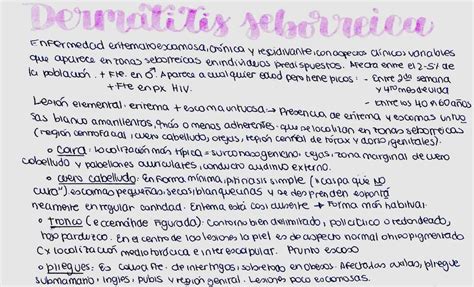 Dermatitis seborreica
Enfermedad eritematoescamosa, crónica y recidivante, con aspectos clínicos variables
que aparece en zonas seborreicas en individuos predispuestos. Afecta entre el 2-5% de
la población. +Fte. en ♂. Aparece a cualquier edad pero tiene picos: - Entre 2da semana
+Fte en px HIV. y 4to mes de vida
- Entre los 40 a 60 años
Lesión elemental: eritema + escama untuosa → Presencia de eritema y escamas untuo
sas blanco amarillentas, más o menos adherentes, que se localizan en zonas seborreicas
(región centrofacial, cuero cabelludo, orejas, región central de tórax y dorso, genitales).
• Cara: localización más típica = surco nasogeniano, cejas, zona marginal de cuero
cabelludo y pabellones auriculares, conducto auditivo externo.
• Cuero cabelludo: En forma mínima, pitiriasis simple ("caspa que NO
cura") escamas pequeñas, secas, blanquecinas y se desprenden espontá
neamente en regular cantidad. Eritema está casi ausente → Forma más habitual.
• Tronco (eccemátide figurada): Contorno bien delimitado, policíclico o redondeado,
rojo parduzco. En el centro de las lesiones la piel es de aspecto normal o hipopigmentado
Cx localización medio torácica e interescapular. Prurito escaso
• Pliegues: Es causa Fte. de intertrigos, sobretodo en obesos. Afecta las axilas, pliegue
submamario, ingles, pubis y región genital. Lesiones poco escamosas.